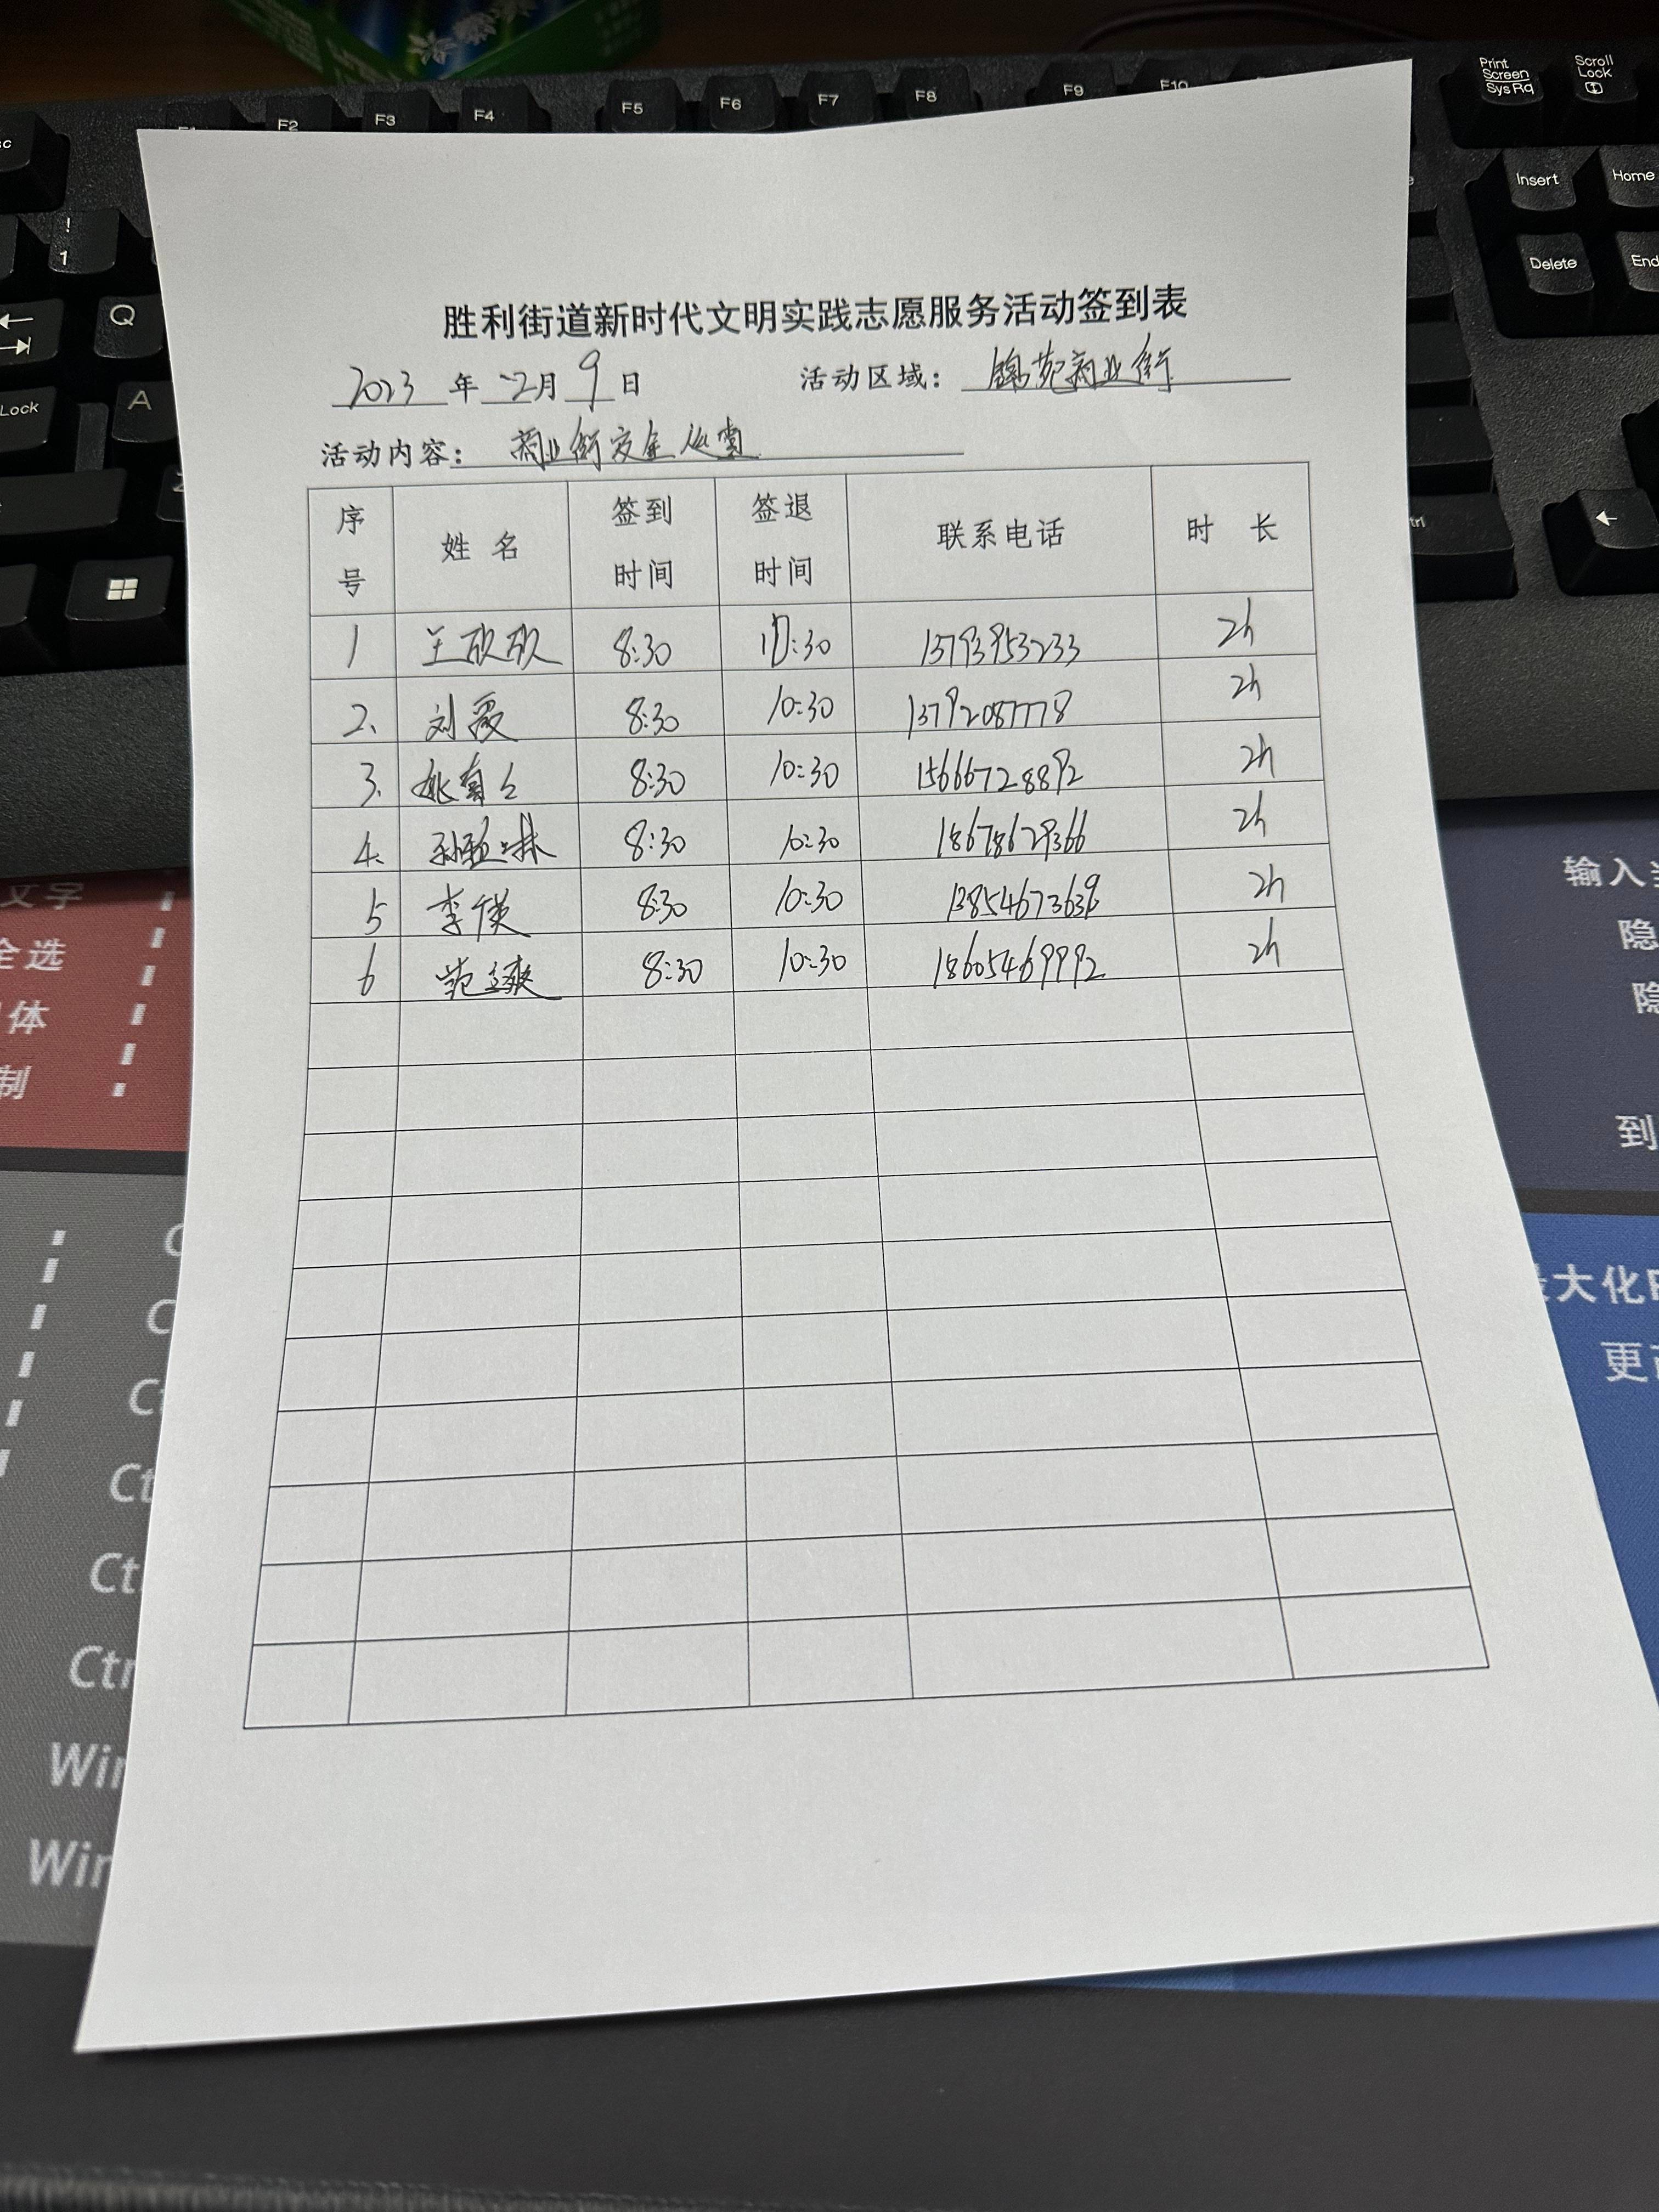 Print Screen SysRq
Scroll Lock
F2 F3 F4 F5 F6 F7 F8 F9 F10
Insert Home
Delete End
! 1
Q
A
Lock
胜利街道新时代文明实践志愿服务活动签到表
2023 年 2月 9日 活动区域: 锦苑商业街
活动内容: 商业街安全巡查
序号 姓名 签到时间 签退时间 联系电话 时长
1 王欣欣 8:30 10:30 13793953233 2h
2、 刘霞 8:30 10:30 13792087778 2h
3、 8:30 10:30 15666728892 2h
4、 8:30 10:30 18678629366 2h
5 李 8:30 10:30 13854673639 2h
6 范 8:30 10:30 18605469992 2h
文字
全选
体
制
输入
隐
隐
到
最大化
更
Ct
Ct
Ct
Ctr
Win
Win